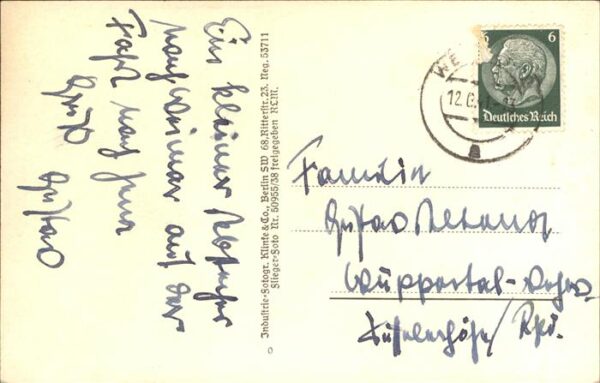 Ein kleiner Abstecher
nach Weimar auf der
Fahrt nach Jena
Gruß
Gustav
Industrie-Fotogr. Klinke & Co., Berlin SW 68, Ritterstr. 23. Neg. 53711
Flieger-Foto Nr. 50955/38 freigegeben RLM.
6 6
Deutsches Reich
WE
12.
a
Familie
Gustav
Wuppertal-